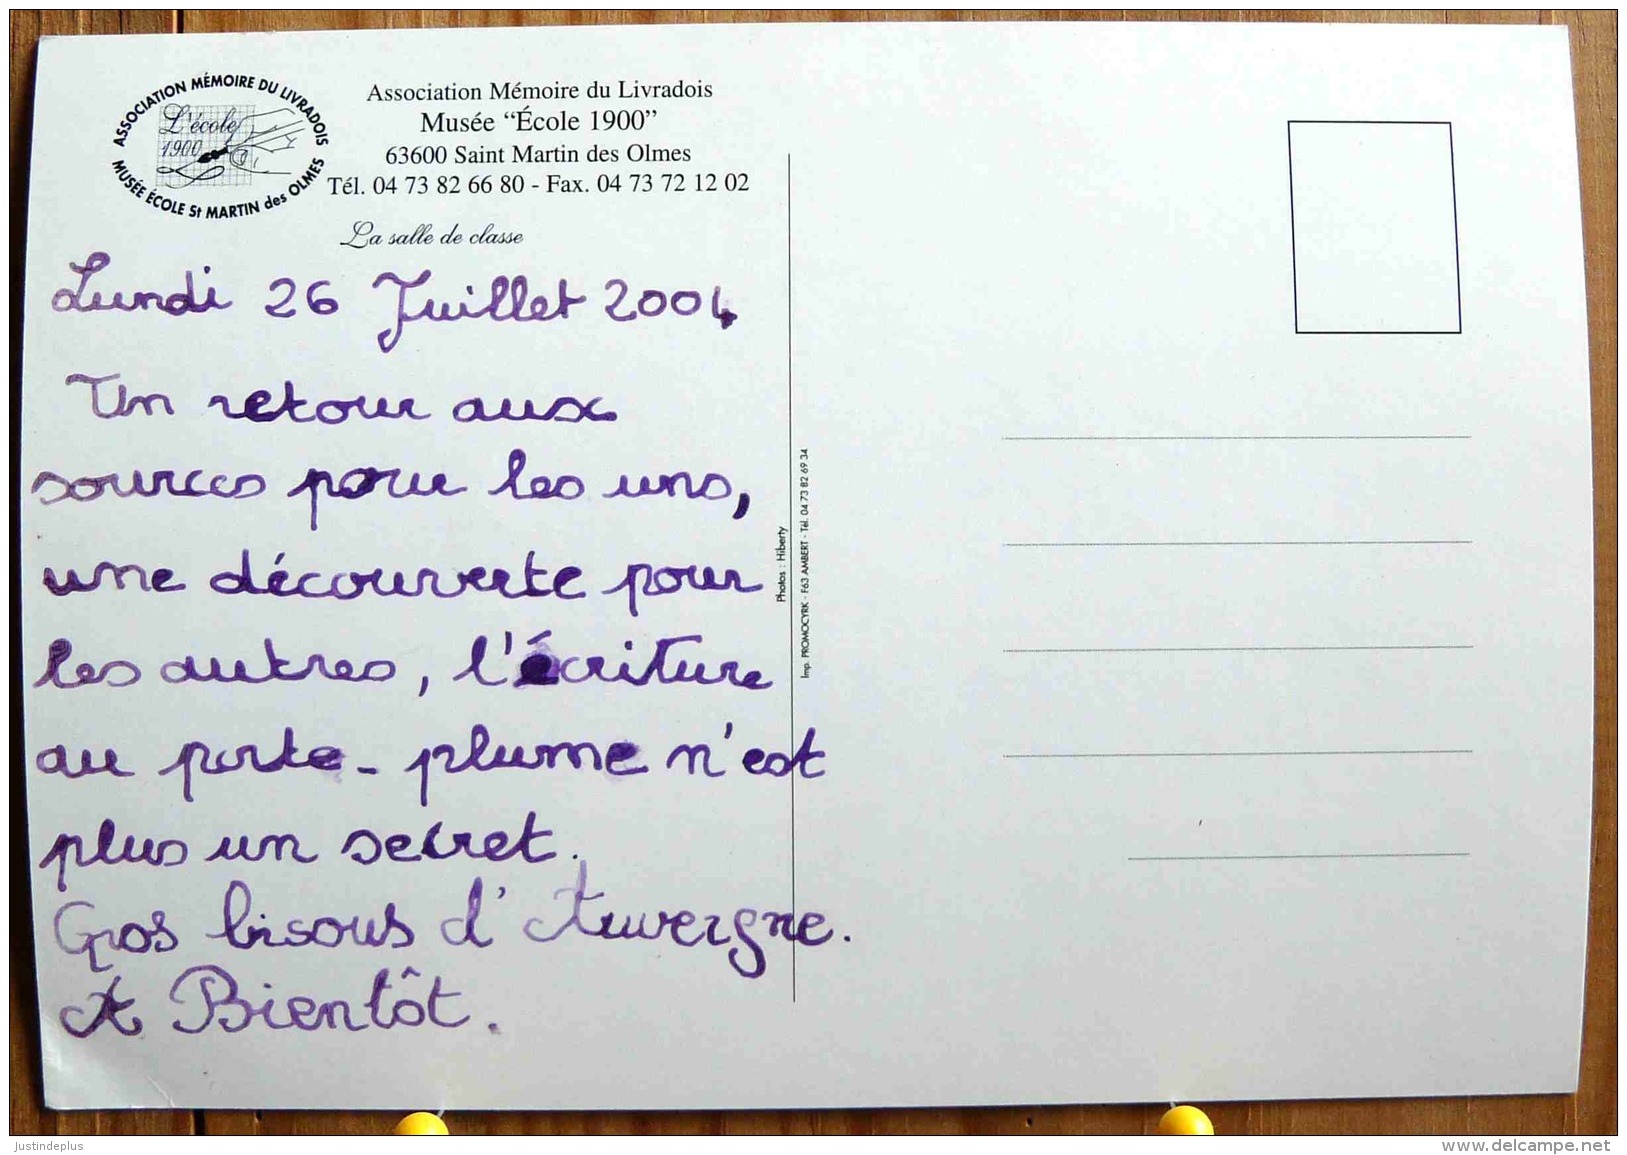 ASSOCIATION MÉMOIRE DU LIVRADOIS
L'école
1900
MUSÉE ÉCOLE St MARTIN des OLMES
Association Mémoire du Livradois
Musée “École 1900”
63600 Saint Martin des Olmes
Tél. 04 73 82 66 80 - Fax. 04 73 72 12 02
La salle de classe
Lundi 26 Juillet 2004
Un retour aux
sources pour les uns,
une découverte pour
les autres, l'écriture
au porte-plume n'est
plus un secret.
Gros bisous d'Auvergne.
A Bientôt.
Photos : Hiberty
Imp. PROMOCYRK - F63 AMBERT - Tél. 04 73 82 69 34
Justindeplus
www.delcampe.net